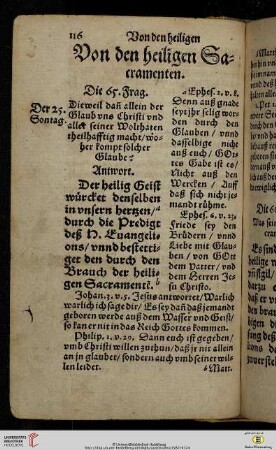 116
Von den heiligen
Von den heiligen Sa-
cramenten.
Die 65. Frag.
Der 25.
Sontag.
Dieweil dañ allein der
Glaub vns Christi vnd
aller seiner Wolthaten
theilhafftig macht/wo-
her kompt solcher
Glaube?
Antwort.
Der heilig Geist
würcket denselben
in vnsern hertzen/
durch die Predigt
deß H. Euangeli-
ons/ vnnd bestetti-
get den durch den
Brauch der heili-
gen Sacramentẽ.
Ephes. 2. v. 8.
Denn auß gnade
seyt jhr selig wor-
den durch den
Glauben / vnnd
dasselbige nicht
auß euch/ GOt-
tes Gabe ist es/
Nicht auß den
Wercken / Auff
daß sich nicht je-
mandt rühme.
Ephes. 6. v. 23.
Friede sey den
Brüdern / vnnd
Liebe mit Glau-
ben / von GOtt
dem Vatter/ vnd
dem Herren Je-
su Christo.
Johan. 3. v. 5. Jesus antwortet/ Warlich
warlich ich sage dir/ Es sey daß daß jemandt
geboren werde auß dem Wasser vnd Geist/
so kan er nit in das Reich Gottes kommen.
Philip. 1. v. 29. Dann euch ist gegeben/
vmb Christi willen zuthun/ daß jr nit allein
an jn glaubet/ sondern auch vmb seiner wil-
len leidet.
Matt.